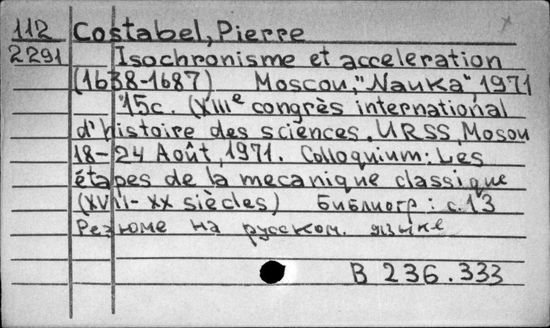 112 Costabel, Pierre
2291 Isochronisme et acceleration
(1638-1687) Moscou, "Nauka" 1971
15c. (XIIIe congrès international
d'histoire des sciences, URSS, Mosou
18-24 Août, 1971. Colloquium: Les
étapes de la mecanique classique
(XVII-XX siècles) Библиогр: с.13
Резюме на русском. языке
B 236.333